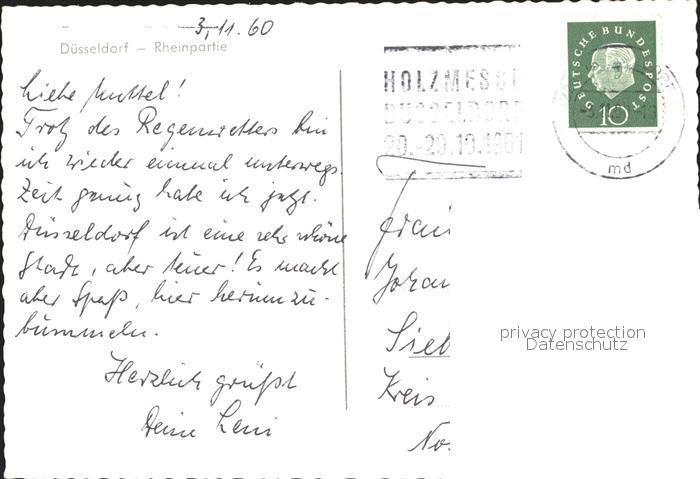 3.11.60
Düsseldorf – Rheinpartie
Liebe Muttel!
Trotz des Regenwetters bin
ich wieder einmal unterwegs.
Zeit genug habe ich jetzt.
Düsseldorf ist eine sehr schöne
Stadt, aber teuer! Es macht
aber Spaß, hier herumzu-
bummeln.
Herzlich grüßt
Deine Leni
HOLZMESSE
DÜSSELDORF
20.-29.10.1961
DEUTSCHE BUNDESPOST
10
md
Frau
Johan
Sieb
Kreis
No.
privacy protection
Datenschutz